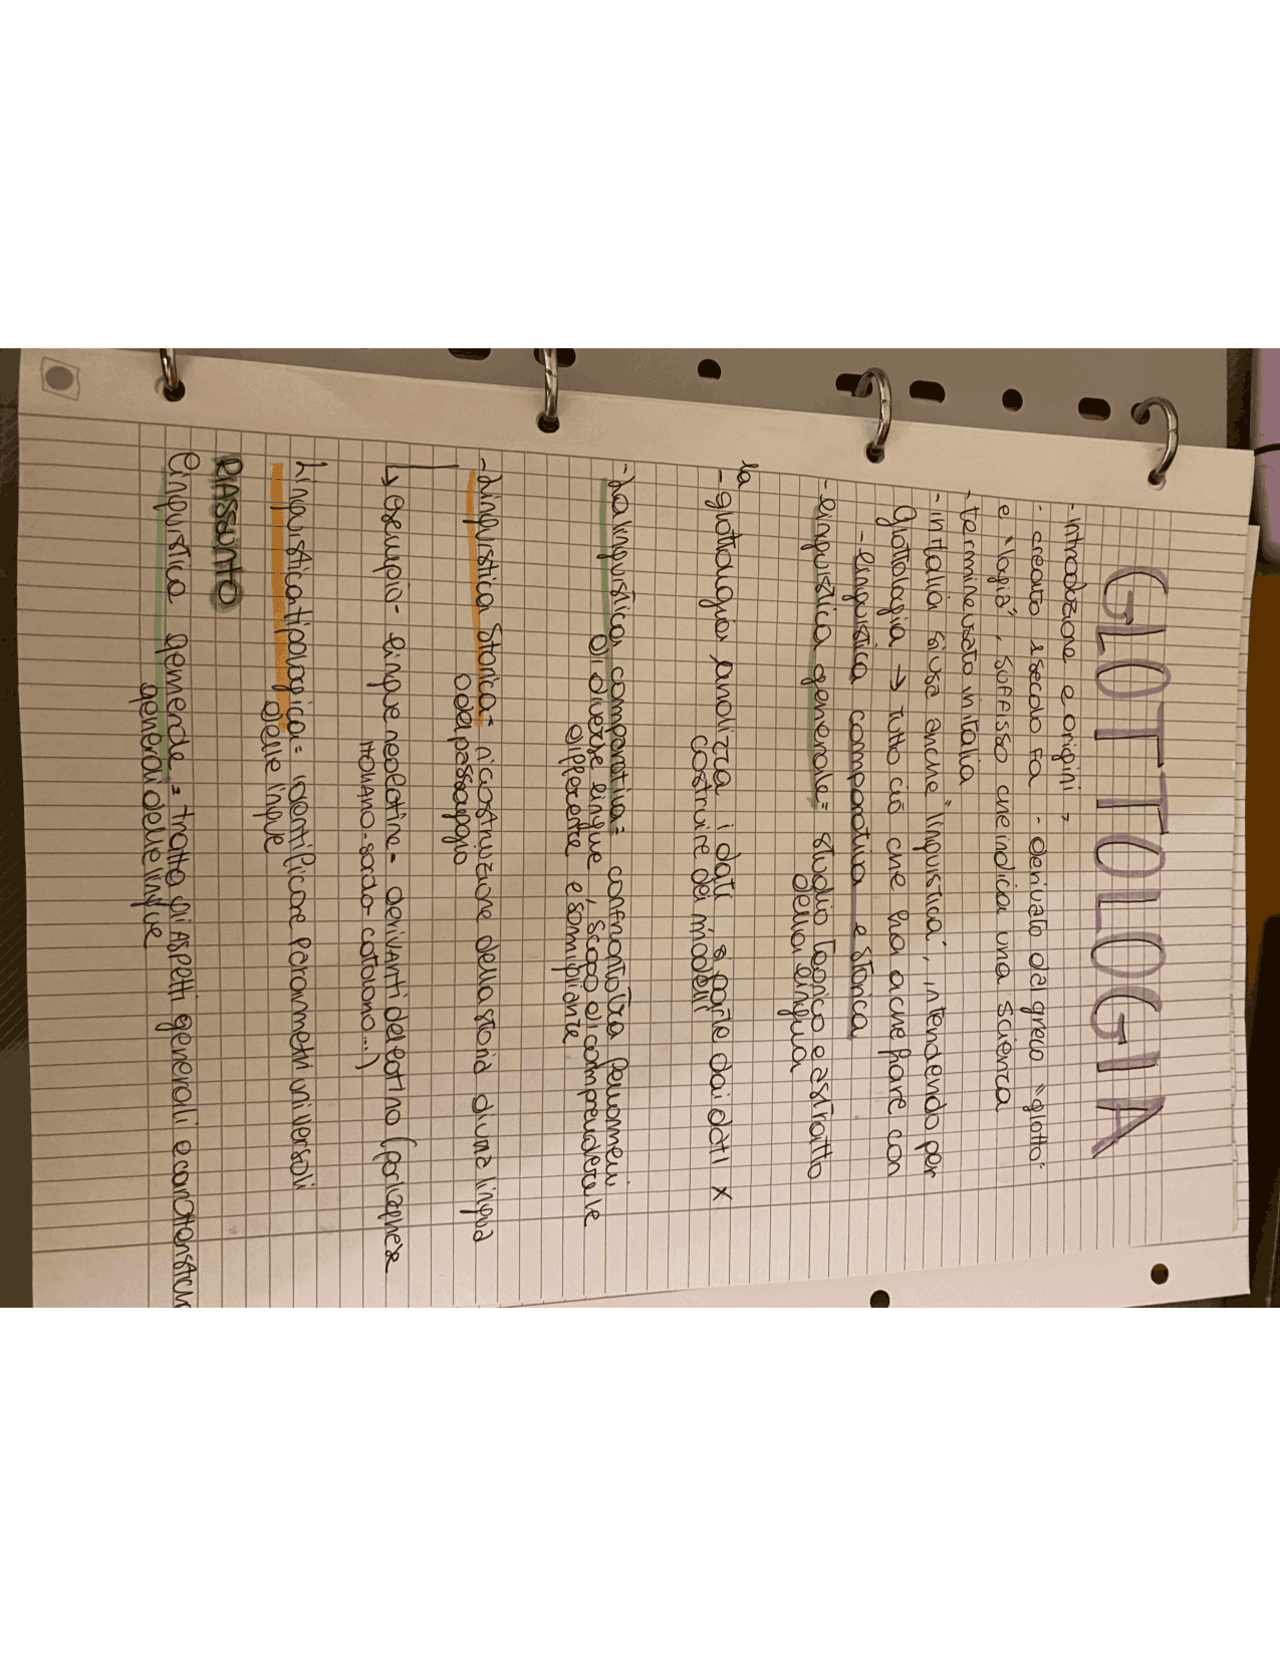 GLOTTOLOGIA
-introduzione e origini,
- creato 1 secolo fa - derivato dal greco "glotto"
e "logia", suffisso che indica una scienza
-termine usato in italia
- in italia si usa anche "linguistica", intendendo per
Glottologia → tutto ciò che ha a che fare con
-linguistica comparativa e storica
-linguistica generale= studio teorico e astratto
della lingua
la
-glottologia analizza i dati, parte dai dati x
costruire dei modelli
-La linguistica comparativa= confronta tra fenomeni
di diverse lingue, scopo di comprendere le
differente e somigliante
-Linguistica Storica= ricostruzione della storia di una lingua
o del passaggio
↳ esempio- lingue neolatine= derivanti del latino (portoghese
italiano-sardo-catalano...)
Linguistica tipologica= identificare parametri universali
delle lingue
RIASSUNTO
linguistica generale = tratta di aspetti generali e caratteristiche
generali delle lingue